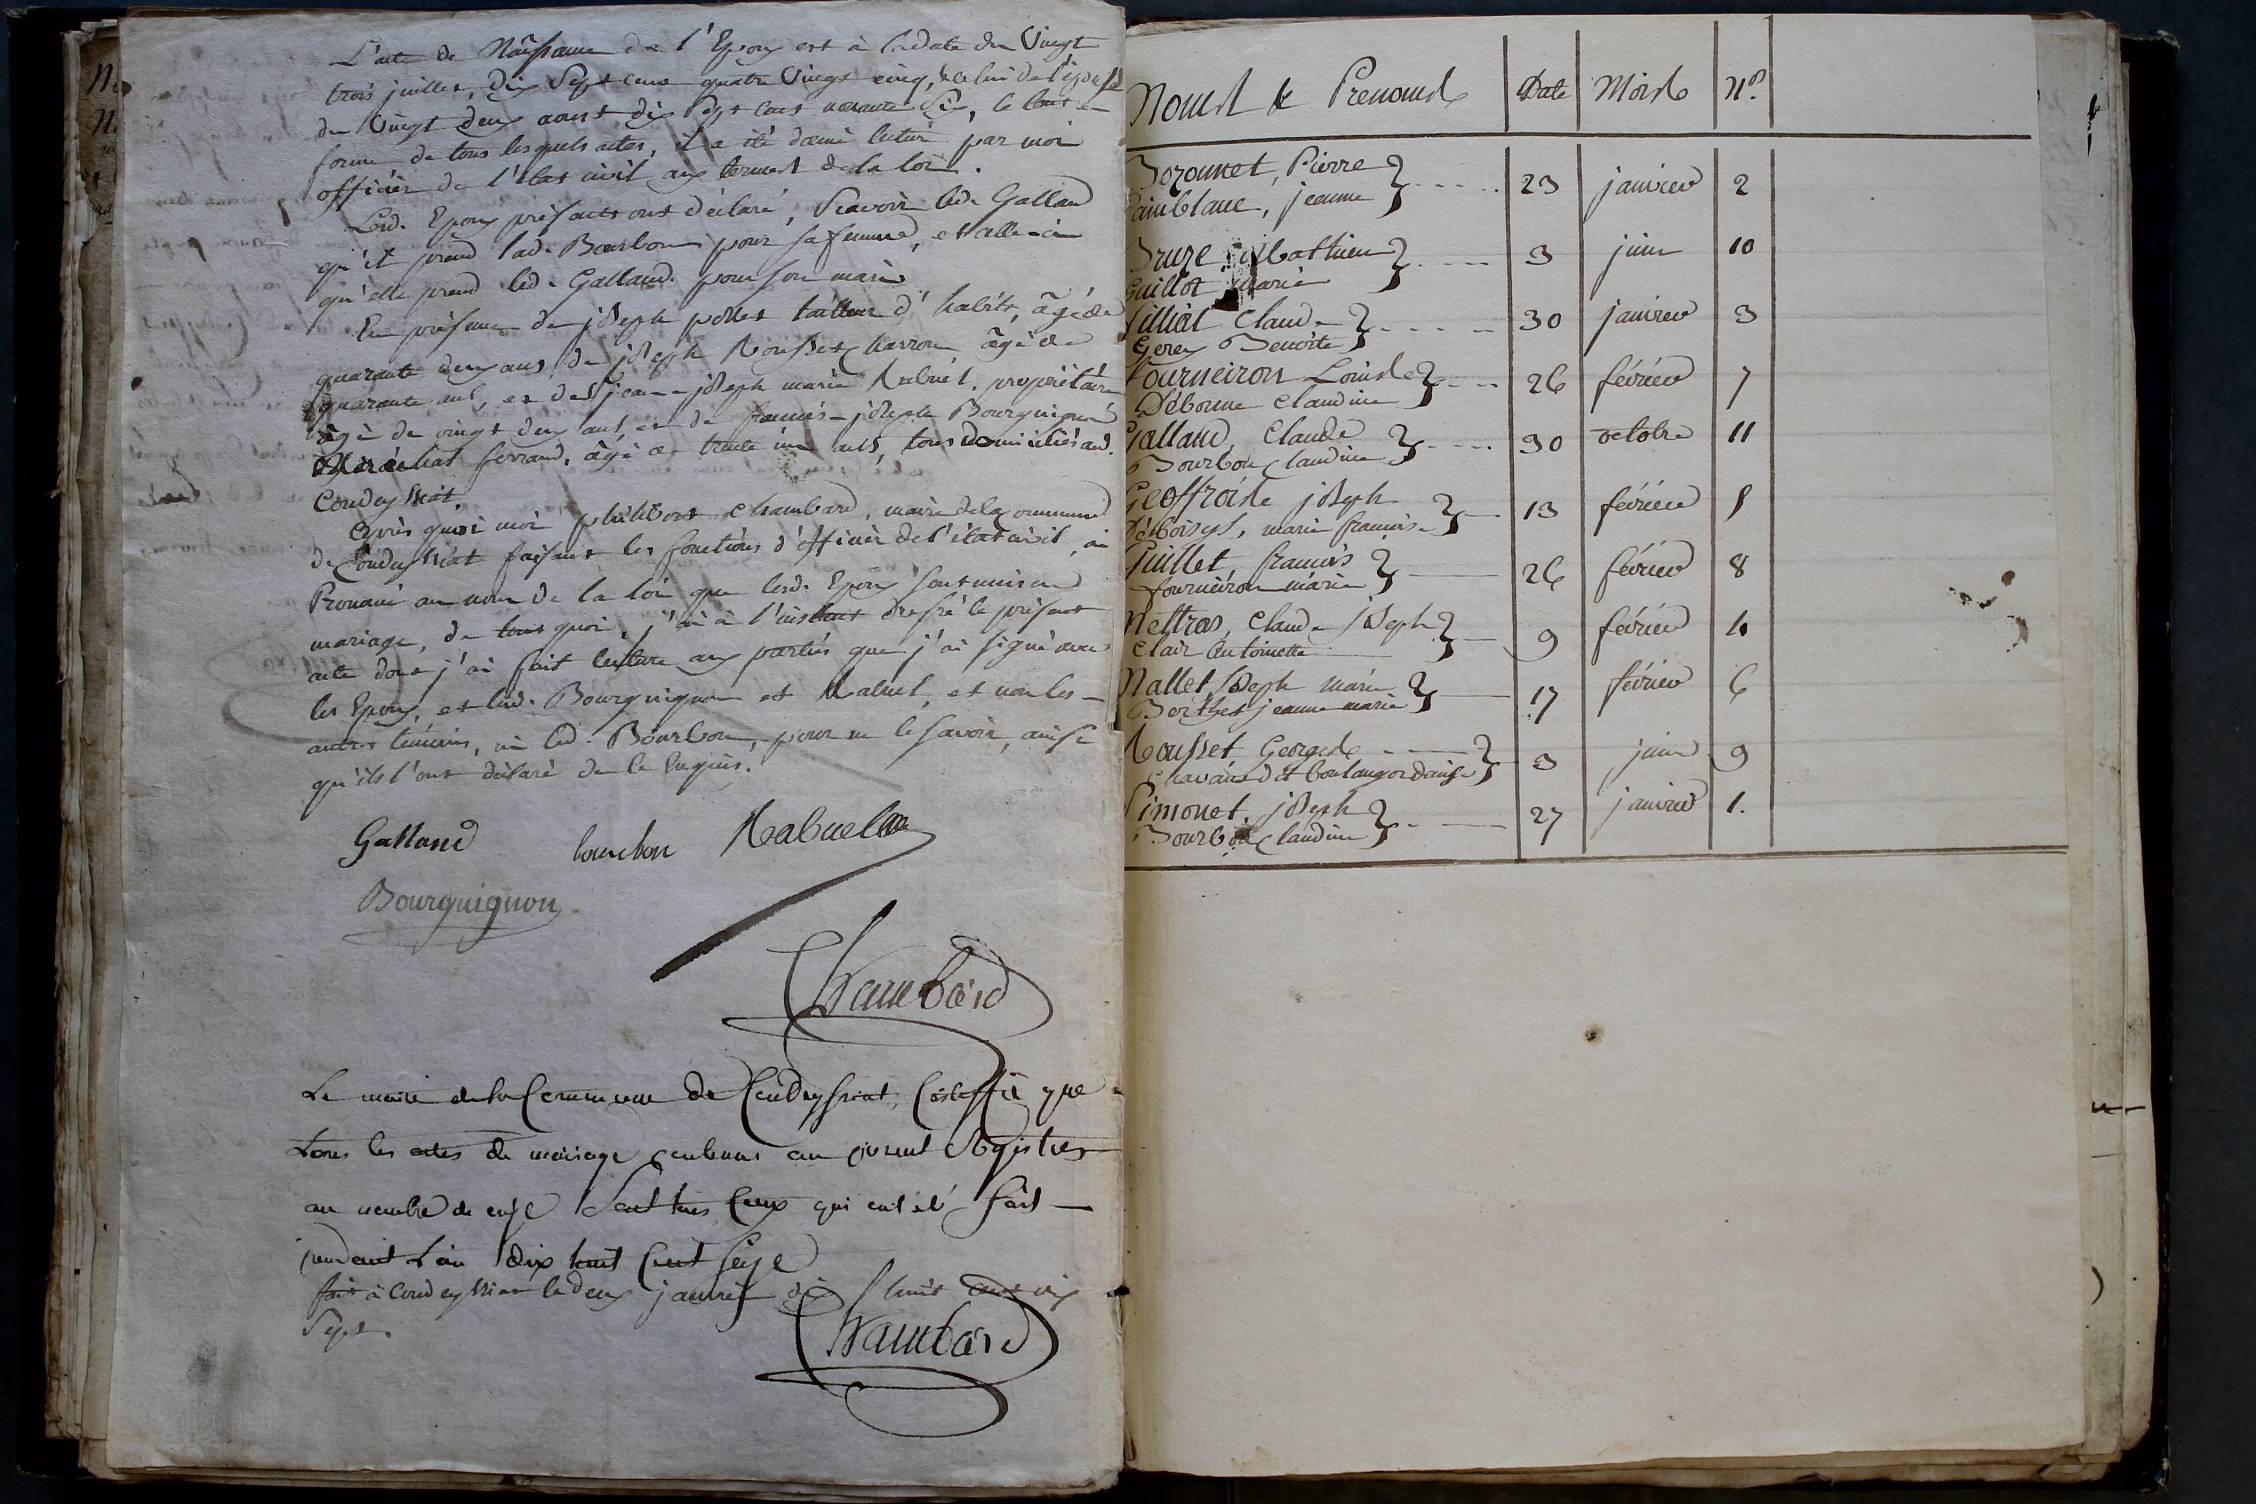 L'acte de Naissance de l'Epoux est à la date du Vingt
trois juillet, dix Sept cens quatre Vingt cinq, & celui de l'épouse
du Vingt deux aoust dix Sept cens nonante Six, le tout en
forme de tous lesquels actes, il a été donné lecture par moi
officier de l'état civil aux termes de la loi.
Lesd. Epoux présents ont déclaré, Scavoir led. Galland
qu'il prend lad. Bourbon pour sa femme, et celle-ci
qu'elle prend led. Galland pour son mari
En présence de joseph pollet tailleur d'habits, âgé de
quarante deux ans, de joseph Rousset charron, âgé de
quarante ans, et de jean-joseph marie Rabuel, propriétaire
âgé de vingt deux ans, et de francois-joseph Bourguignon
Maréchal ferrand, âgé de trente un ans, tous domiciliés aud.
Condeyssiat.
Après quoi moi philibert Chambard, maire de la commune
de Condeyssiat faisant les fonctions d'officier de l'état civil, ai
Prononcé au nom de la loi que lesd. Epoux sont unis en
mariage, de tout quoi, j'ai à l'instant dressé le présent
acte dont j'ai fait lecture aux parties que j'ai signé avec
les Epoux, et lesd. Bourguignon et Rabuel, et non les
autres témoins, ni led. Bourbon, pour ne le savoir, ainsi
qu'ils l'ont déclaré de ce Enquis.
Galland bourbon Rabuel
Bourguignon
Chambard
Le maire de la Commune de Condeyssiat, Certiffie que
Tous les actes de mariage contenus au présent Registres
au nombre de onze Sont tous Ceux qui ont été fait
pendant L'an dix huit Cent Seize
fait à Condeyssiat le deux janvier dix huit cent dix
Sept.
Chambard
Noms & Prenoms Date Mois Nos.
Pierre
jeanne 23 janvier 2
Mathieu
Guillot marie 3 juin 10
Claude
Benoite 30 janvier 3
Fourneiron Louis
Débonne Claudine 26 février 7
Galland, Claude
Bourbon Claudine 30 octobre 11
Geoffroi joseph
marie francoise 13 février 5
Guillet, francois
fourneiron marie 26 février 8
Mettras, Claude joseph
Clair Antoinette 9 février 4
Nallet Joseph marie
Berthet jeanne marie 17 février 6
Rousset George
Chavanne dit boulanger denise 3 juin 9
Simonet, joseph
Bourbon Claudine 27 janvier 1.